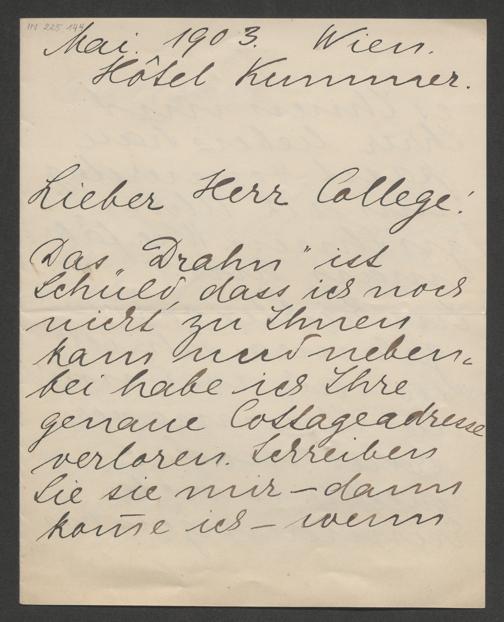 IN 225.144
Mai. 1903. Wien.
Hôtel Kummer.
Lieber Herr College!
Das „Drahn" ist
Schuld, dass ich noch
nicht zu Ihnen
kam und neben-
bei habe ich Ihre
genaue Cottageadresse
verloren. Schreiben
Sie sie mir – dann
kom̅e ich – wenn